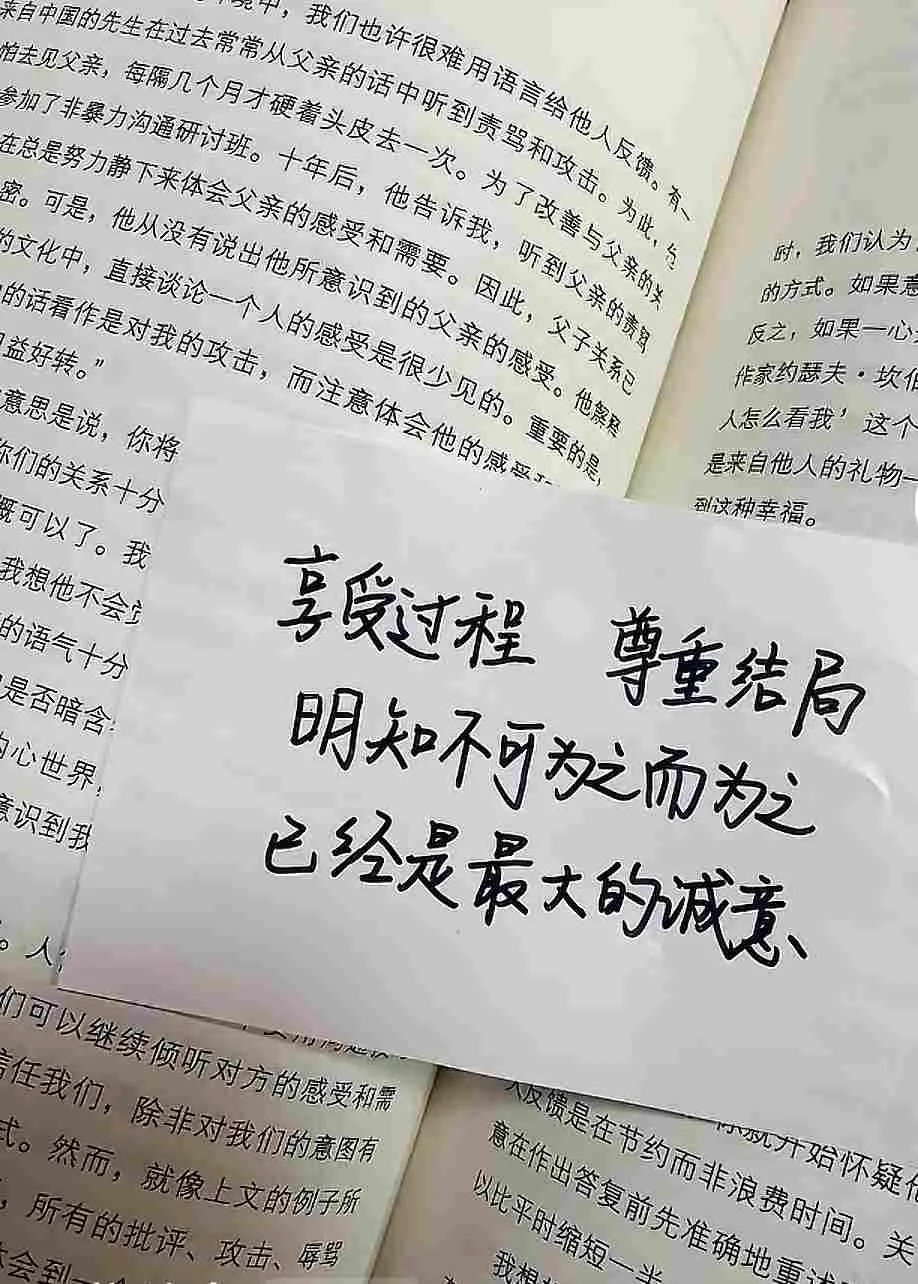 境中，我们也许很难用语言给他人反馈。有一
来自中国的先生在过去常常从父亲的话中听到责骂和攻击。为此，
怕去见父亲，每隔几个月才硬着头皮去一次。为了改善与父亲的关
参加了非暴力沟通研讨班。十年后，他告诉我，听到父亲的责骂
在总是努力静下来体会父亲的感受和需要。因此，父子关系已
密。可是，他从没有说出他所意识到的父亲的感受。他解释
的文化中，直接谈论一个人的感受是很少见的。重要的是，
的话看作是对我的攻击，而注意体会他的感受和
益好转。”
意思是说，你将
你们的关系十分
概可以了。我
我想他不会觉
的语气十分
是否暗含
内心世界，
意识到我
时，我们认为
的方式。如果意
反之，如果一心
作家约瑟夫·坎伯
人怎么看我’这个
是来自他人的礼物一
到这种幸福。
享受过程 尊重结局
明知不可为之而为之
已经是最大的诚意、
。人
们可以继续倾听对方的感受和需
信任我们，除非对我们的意图有
式。然而，就像上文的例子所
，所有的批评、攻击、辱骂
体会到一个
你就开始怀疑他
人反馈是在节约而非浪费时间。关
意在作出答复前先准确地重述
以比平时缩短一半
我想